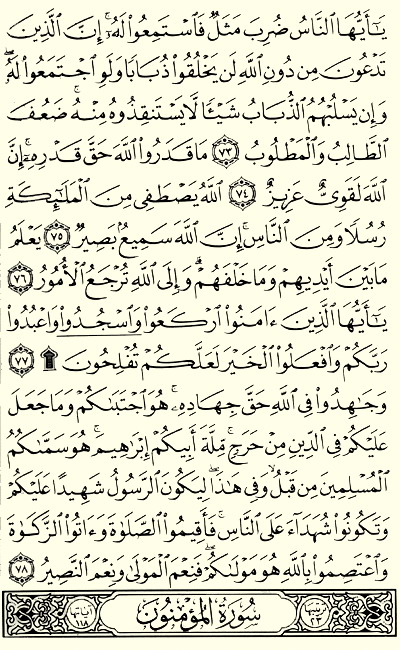 يَـٰٓأَيُّهَا ٱلنَّاسُ ضُرِبَ مَثَلٌ فَٱسْتَمِعُوا۟ لَهُۥٓ ۚ إِنَّ ٱلَّذِينَ
تَدْعُونَ مِن دُونِ ٱللَّهِ لَن يَخْلُقُوا۟ ذُبَابًا وَلَوِ ٱجْتَمَعُوا۟ لَهُۥ ۖ
وَإِن يَسْلُبْهُمُ ٱلذُّبَابُ شَيْـًٔا لَّا يَسْتَنقِذُوهُ مِنْهُ ۚ ضَعُفَ
ٱلطَّالِبُ وَٱلْمَطْلُوبُ ٧٣ مَا قَدَرُوا۟ ٱللَّهَ حَقَّ قَدْرِهِۦٓ ۗ إِنَّ
ٱللَّهَ لَقَوِىٌّ عَزِيزٌ ٧٤ ٱللَّهُ يَصْطَفِى مِنَ ٱلْمَلَـٰٓئِكَةِ
رُسُلًا وَمِنَ ٱلنَّاسِ ۚ إِنَّ ٱللَّهَ سَمِيعٌۢ بَصِيرٌ ٧٥ يَعْلَمُ
مَا بَيْنَ أَيْدِيهِمْ وَمَا خَلْفَهُمْ ۗ وَإِلَى ٱللَّهِ تُرْجَعُ ٱلْأُمُورُ ٧٦
يَـٰٓأَيُّهَا ٱلَّذِينَ ءَامَنُوا۟ ٱرْكَعُوا۟ وَٱسْجُدُوا۟ وَٱعْبُدُوا۟
رَبَّكُمْ وَٱفْعَلُوا۟ ٱلْخَيْرَ لَعَلَّكُمْ تُفْلِحُونَ ۩ ٧٧
وَجَـٰهِدُوا۟ فِى ٱللَّهِ حَقَّ جِهَادِهِۦ ۚ هُوَ ٱجْتَبَىٰكُمْ وَمَا جَعَلَ
عَلَيْكُمْ فِى ٱلدِّينِ مِنْ حَرَجٍ ۚ مِّلَّةَ أَبِيكُمْ إِبْرَٰهِيمَ ۚ هُوَ سَمَّىٰكُمُ
ٱلْمُسْلِمِينَ مِن قَبْلُ وَفِى هَـٰذَا لِيَكُونَ ٱلرَّسُولُ شَهِيدًا عَلَيْكُمْ
وَتَكُونُوا۟ شُهَدَآءَ عَلَى ٱلنَّاسِ ۚ فَأَقِيمُوا۟ ٱلصَّلَوٰةَ وَءَاتُوا۟ ٱلزَّكَوٰةَ
وَٱعْتَصِمُوا۟ بِٱللَّهِ هُوَ مَوْلَىٰكُمْ ۖ فَنِعْمَ ٱلْمَوْلَىٰ وَنِعْمَ ٱلنَّصِيرُ ٧٨
ترتيبها ٢٣ سُورَةُ المُؤْمِنُونَ آياتها ١١٨